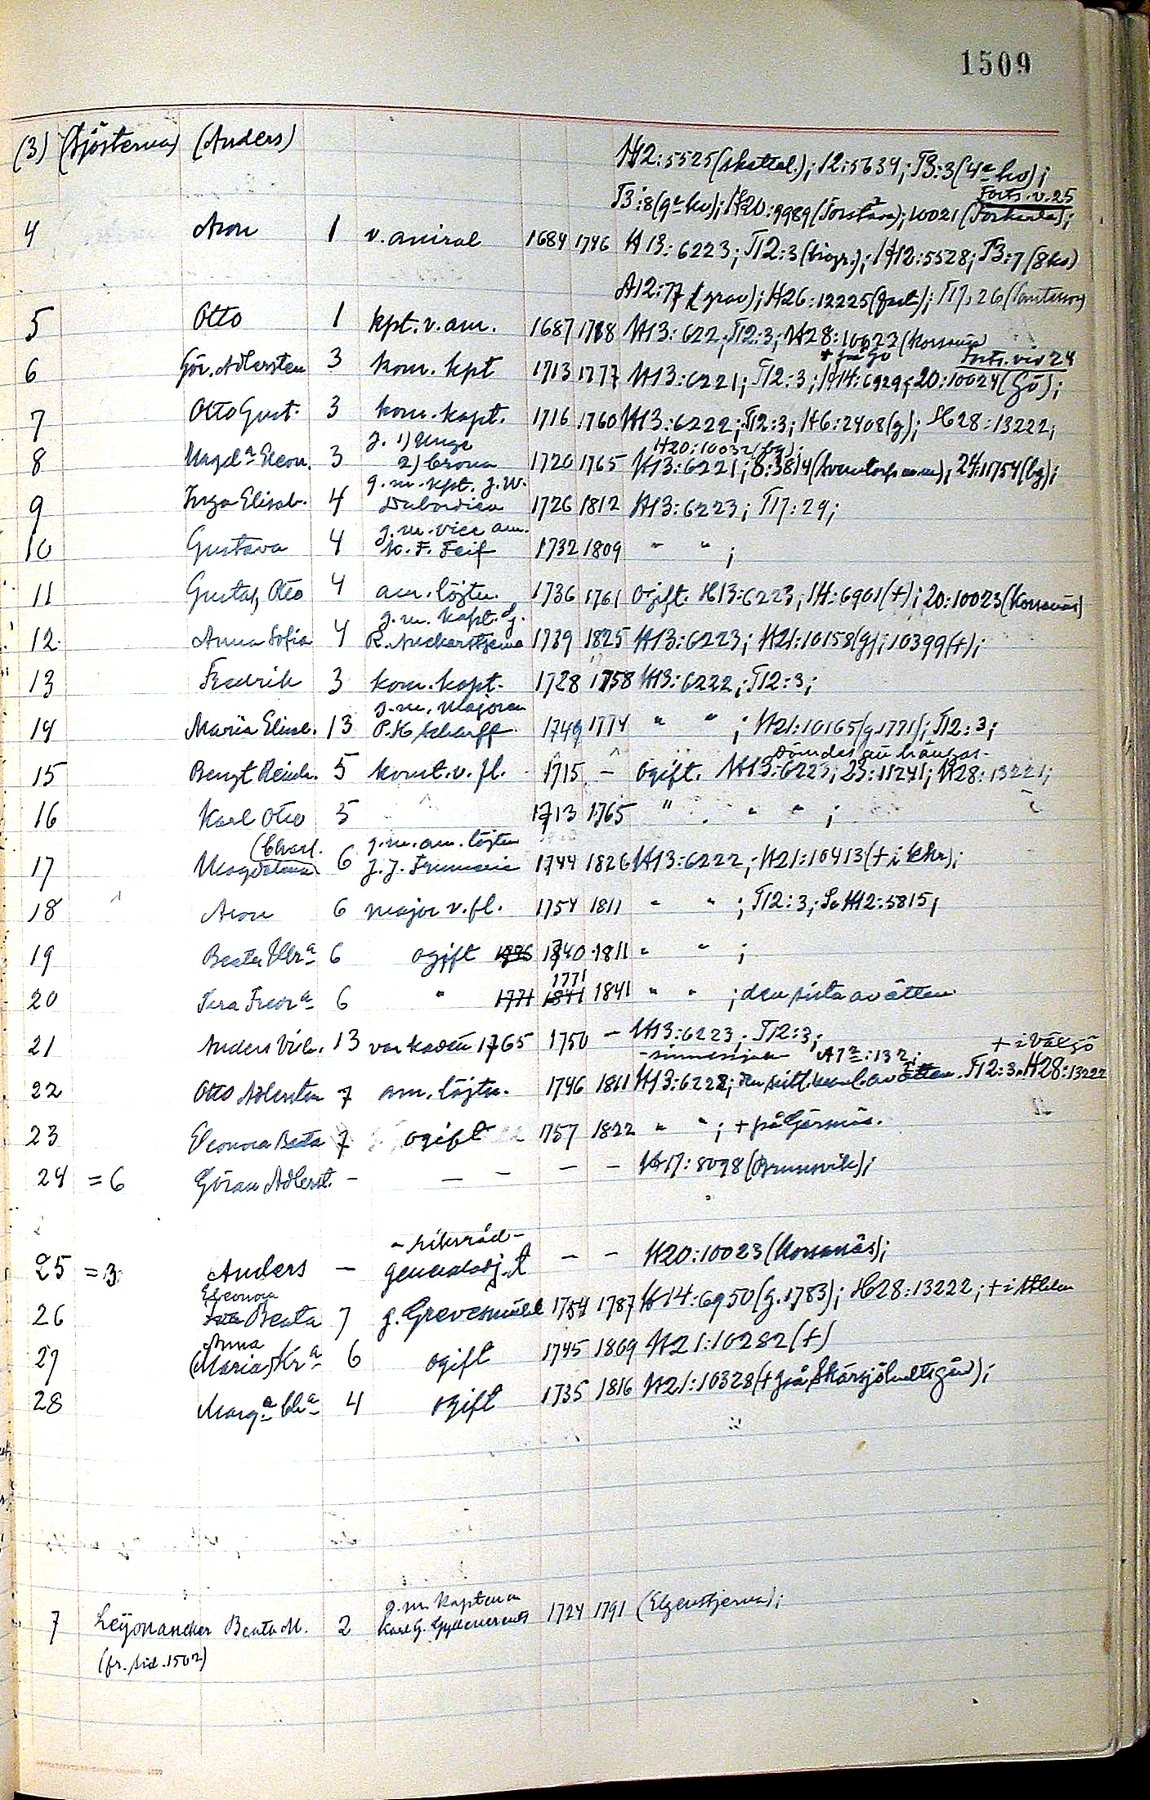 1509
(3) (Sjöstierna) (Anders) H2:5525(skattel.); 12:5634; T3:3(4ª hv);
Forts. v. 25
T3:8(9ª hv); H20:9989(Torstäva); 10021(
4 Aron 1 v. amiral 1684 1746 H13:6223; T12:3(biogr.); H12:5528; T3:7(8hv)
A12:77(grav); H26:12225(
5 Otto 1 kpt. v. am. 1687 1788 H13:622; T12:3; H28:10022(Korsanäs
+ på Gö Forts. vid 24
6 Gör. Adlersten 3 kom. kpt 1713 1777 H13:6221; T12:3; H14:6929; 20:10024(Gö);
7 Otto Gust. 3 kom. kapt. 1716 1760 H13:6222; T12:3; H6:2408(g); H28:13222;
g. 1) Unge H20:10032(bg);
8 Magdª Eleon. 3 2) Crona 1720 1765 H13:6221; 8:3814( 24:11754(bg);
g. m. kpt. J. W.
9 Inga Elisab. 4 Dubowice 1726 1812 H13:6223; T17:29;
g. m. vice am.
10 Gustava 4 K. F. Feif 1732 1809 " " ;
11 Gustaf Otto 4 am. löjtn. 1736 1761 Ogift. H13:6223; 14:6901(+); 20:10023(Korsanäs)
g. m. kapt. G.
12. Anna Sofia 4 R. Ankarstjerna 1739 1825 H13:6223; H21:10158(g); 10399(+);
13 Fredrik 3 kom. kapt. 1728 1758 H13:6222; T12:3;
g. m. majoren
14 Maria Elisab. 13 P. H. Scharff 1749 1774 " " ; H21:10165(g. 1771); T12:3;
Dömdes att hängas.
15 Bengt Reinh. 5 konst. v. fl. 1715 – Ogift. H13:6223; 23:11241; H28:13221;
16 Karl Otto 5 1713 1765 " " " ;
(Charl. g. m. am. löjtn
17 Magdalena 6 J. J. Trumeie 1744 1826 H13:6222; H21:10413(+ i Ekh);
18 Aron 6 major v. fl. 1754 1811 " " ; T12:3; Se H12:5815;
19 Beata Ulrª 6 ogift 1776 1740 1811 " " ;
1771
20 Sara Fredrª 6 " 1771 1841 1841 " " ; den sista av ätten
21 Anders Vilh. 13 var kadett 1765 1750 – H13:6223; T12:3; + i Växjö
A7ª:132;
22 Otto Adlersten 7 am. löjtn. 1746 1811 H13:6222; av ätten. T12:3. H28:13222
23 Eleonora Beata 7 ogift 1757 1822 " " ; + på Görsnäs.
24 = 6 Göran Adlerst. – – – – H17:8098(Brunsvik);
– riksråd –
25 = 3 Anders – generaladj. t – – H20:10023(Korsanäs);
Eleonora
26 Beata 7 g. Grevesmühl 1754 1787 H14:6950(g. 1783); H28:13222; + i
Anna
27 (Maria) Krª 6 ogift 1745 1809 H21:10282(+)
28 Margª Chª 4 ogift 1735 1816 H21:10328(+ på Skärsjöhultsgård);
g. m. kaptenen
7 Leijonancker Beata M. 2 Karl G. Gyllenerents 1724 1791 (Elgenstjerna);
(fr. sid. 1502)